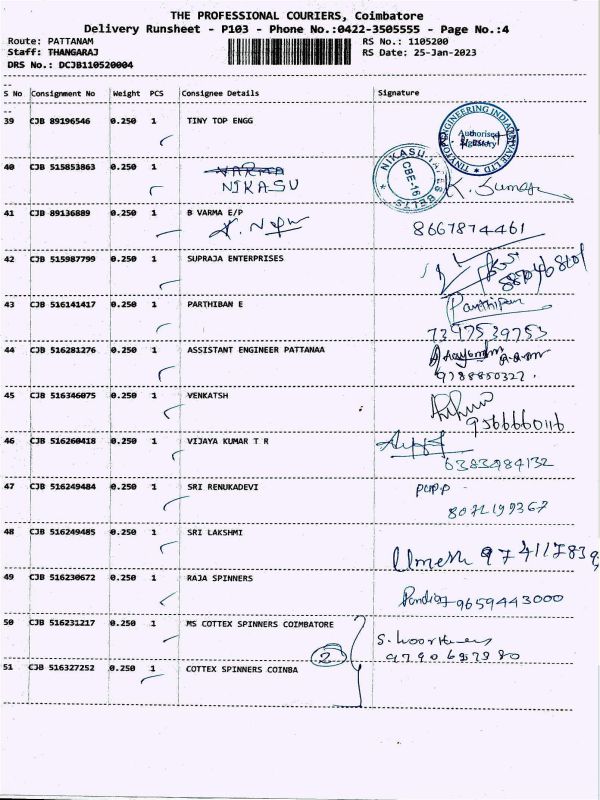 THE PROFESSIONAL COURIERS, Coimbatore
Delivery Runsheet - P103 - Phone No.:0422-3505555 - Page No.:4
Route: PATTANAM RS No.: 1105200
Staff: THANGARAJ RS Date: 25-Jan-2023
DRS No.: DCJB110520004
S No Consignment No Weight PCS Consignee Details Signature
39 CJB 89196546 0.250 1 TINY TOP ENGG
Authorised Signatory
40 CJB 515853863 0.250 1 VARMA
NIKASU K. Kumar
NIKASU TAPES BELTS CBE-16
41 CJB 89136889 0.250 1 B VARMA E/P
8667874461
42 CJB 515987799 0.250 1 SUPRAJA ENTERPRISES
43 CJB 516141417 0.250 1 PARTHIBAN E Parthiban
7397539753
44 CJB 516281276 0.250 1 ASSISTANT ENGINEER PATTANAA
9788850327.
45 CJB 516346075 0.250 1 VENKATSH
9566660116
46 CJB 516260418 0.250 1 VIJAYA KUMAR T R
6383984132
47 CJB 516249484 0.250 1 SRI RENUKADEVI pupp
8072199367
48 CJB 516249485 0.250 1 SRI LAKSHMI
Umesh 974117839
49 CJB 516230672 0.250 1 RAJA SPINNERS
9659443000
50 CJB 516231217 0.250 1 MS COTTEX SPINNERS COIMBATORE
2
51 CJB 516327252 0.250 1 COTTEX SPINNERS COINBA